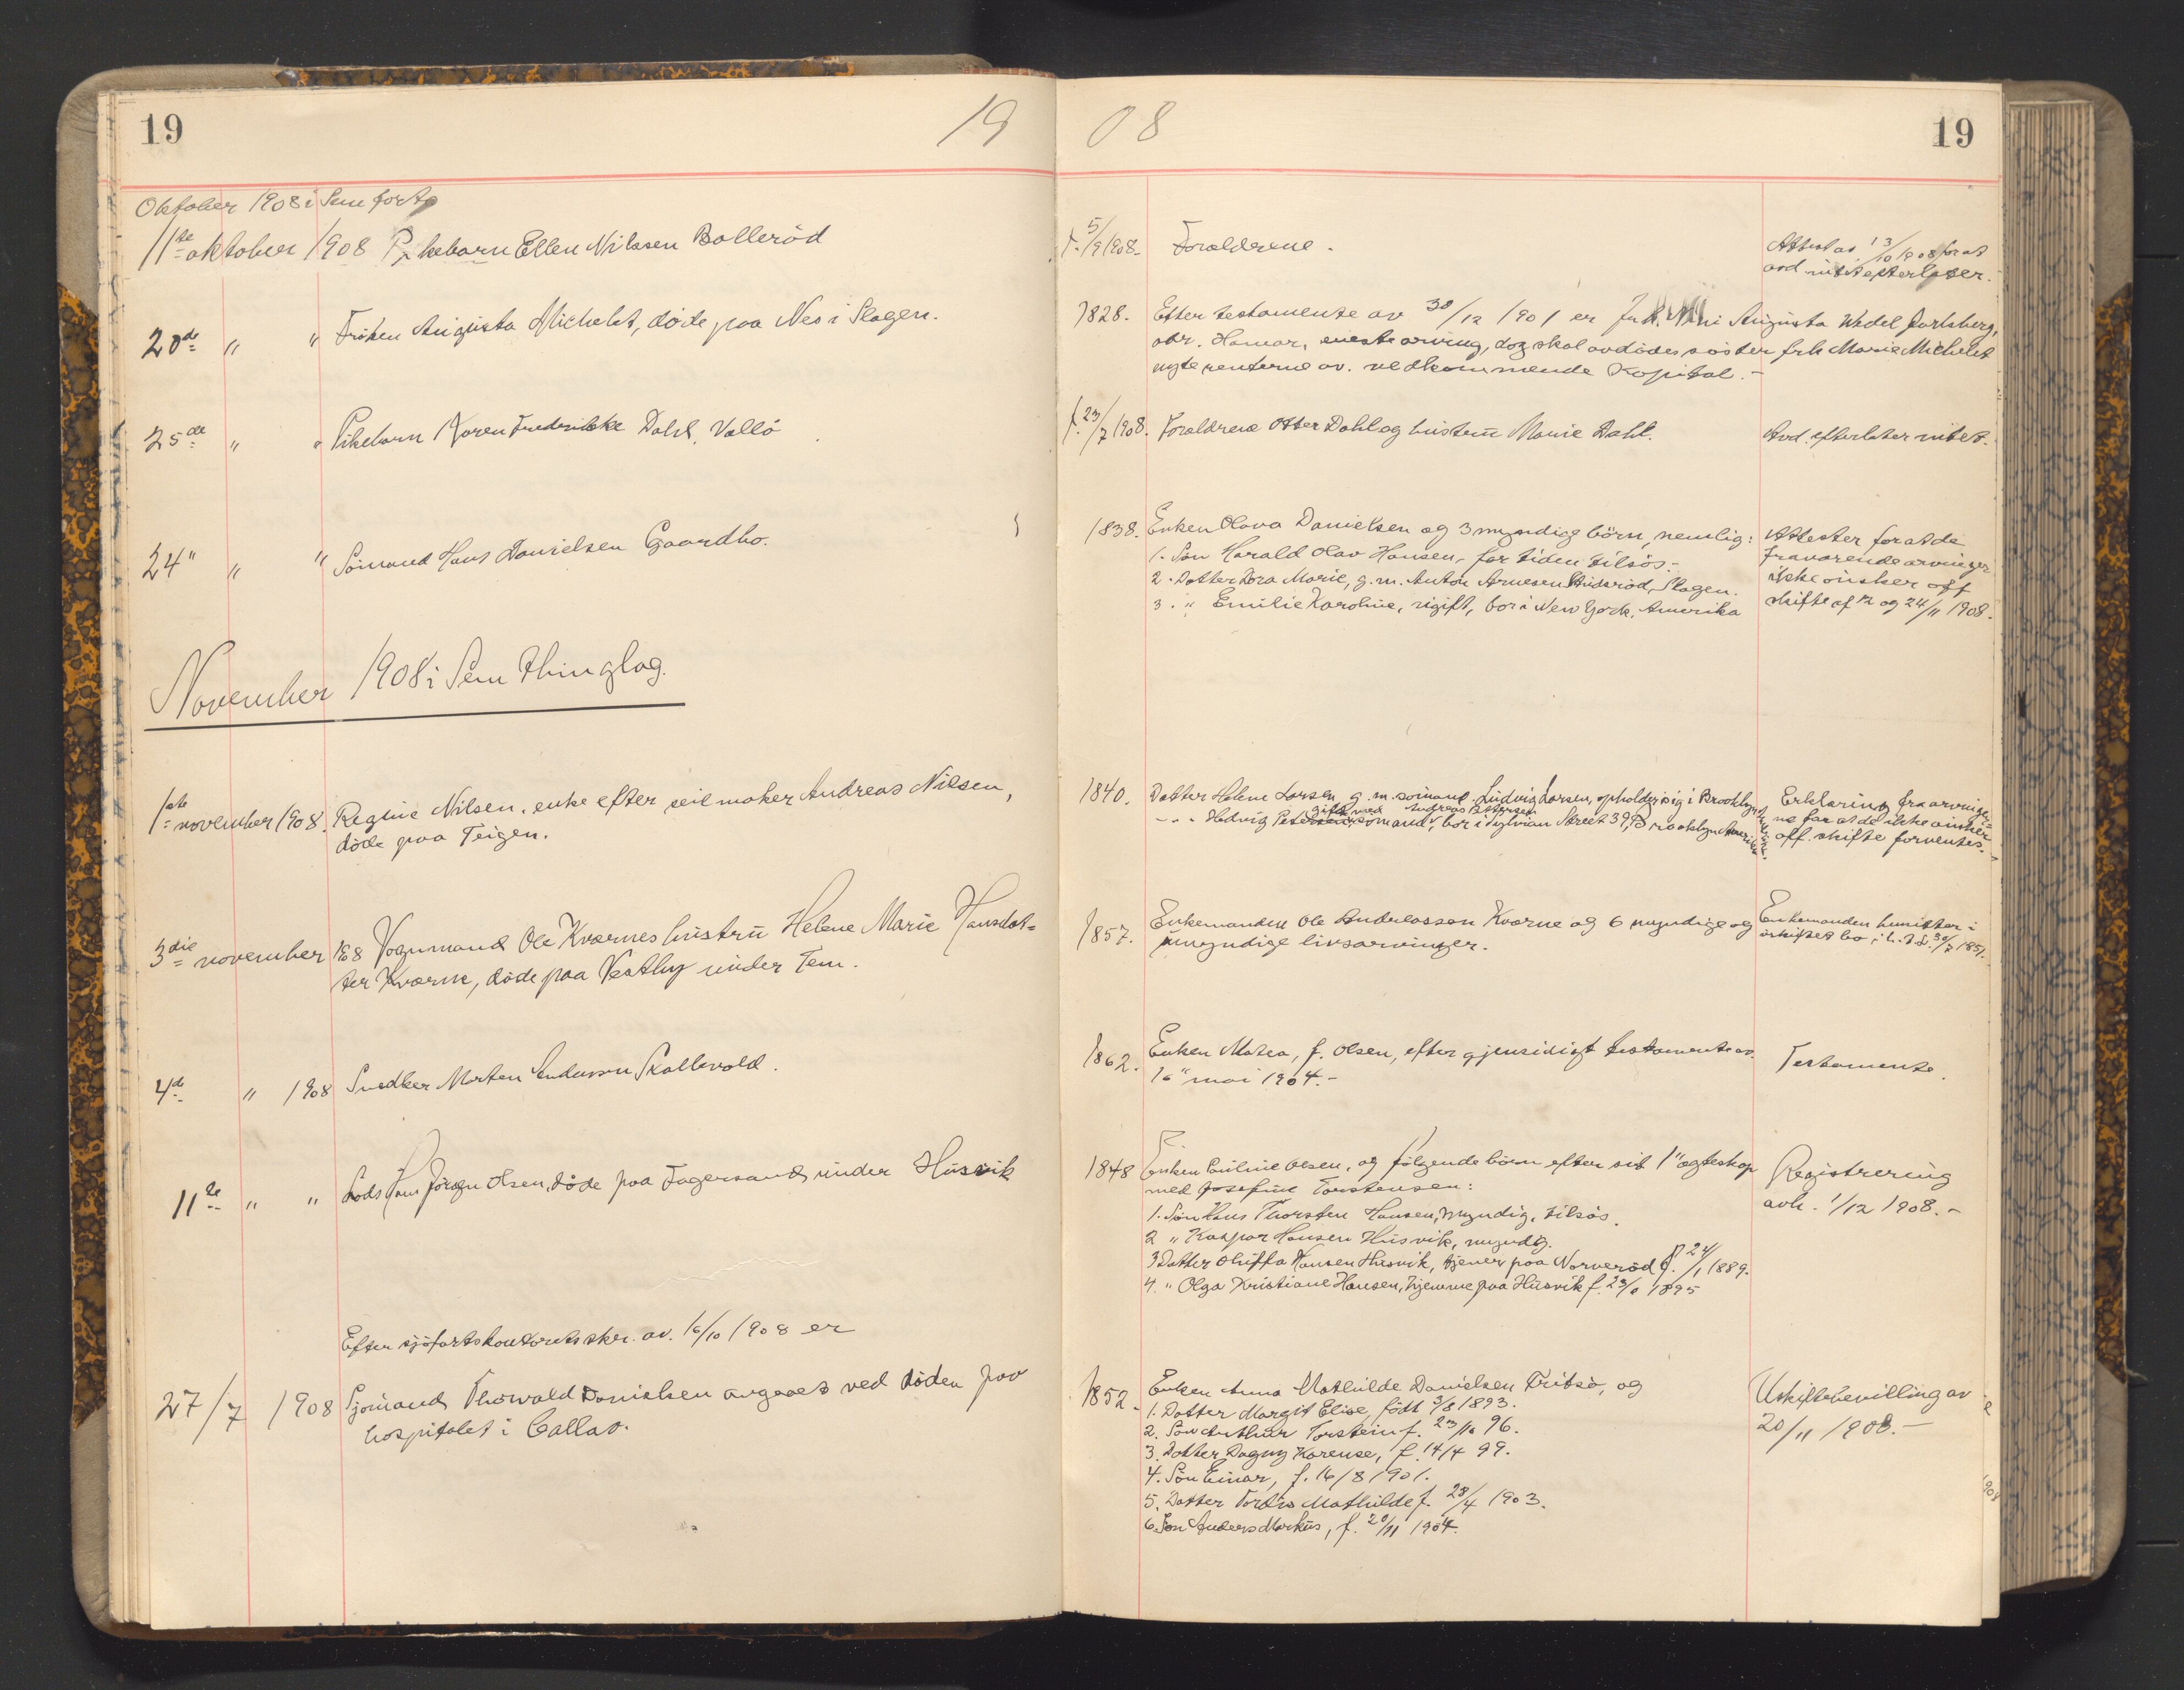 19
19
08
19
Oktober 1908 i Sem forts.
11te oktober 1908 Pikebarn Ellen Nilsen Bolleröd
f. 5/9 1908. Forældrene.
Attest av 13/10 1908 for at
avd. intet efterlater.
20de " " Fröken Augusta Michelet, döde paa Nes i Slagen.
1828. Efter testamente av 30/12 1901 er frk. Augusta Wedel Jarlsberg,
adr. Hamar, eneste arving, dog skal avdödes söster frk Marie Michelet
nyte renterne av vedkommende Kapital.-
25de " " Pikebarn Karen Fredrikke Dahl, Vallö
f. 23/7 1908. Forældrene Otter Dahl og hustru Marie Dahl.
Avd. efterlater intet.
24" " " Sömand Hans Danielsen Gaardbo.
1838. Enken Olava Danielsen og 3 myndige börn, nemlig:
1. Sön Harald Olav Hansen, for tiden tilsös.-
2. Datter Dora Marie, g. m. Anton Arnesen, Slagen.
3. " Emilie Karoline, ugift, bor i New York, Amerika
Attester for at de
fraværende arvinger
ikke önsker off
skifte af 12 og 24/11 1908.
November 1908 i Sem Thinglag.
1ste november 1908. Regine Nilsen, enke efter seilmaker Andreas Nilsen,
döde paa Teigen.
1840. Datter Helene Larsen, g. m. sömand Ludvig Larsen, opholder sig i Brooklyn
gift med Andreas Petersen
- " - Hedvig Petersen, sömand, bor i Street 39, Brooklyn Amerika
Erklæring fra arvinger-
ne for at de ikke önsker
off. skifte forventes.-
3die november 1908 Vognmand Ole Kværnes hustru Helene Marie Hansdat=
ter Kværne, döde paa Vestby under Tem.
1857. Enkemanden Ole Andreassen Kværne og 6 myndige og
umyndige livsarvinger.
Enkemanden hensitter i
uskiftet bo i h. t. l. 30/7 1851.
4de " 1908 Snedker Morten Andersen Skallevold.
1862. Enken Matea, f. Olsen, efter gjensidigt testamente av
16" mai 1904.-
Testamente.
11te " " Lods Hans Jörgen Olsen, döde paa Fagersand under Husvik
1848 Enken Pauline Olsen, og fölgende börn efter sit 1" ægteskap
med Josefine Torstensen:
1. Sön Hans Thorsten Hansen, myndig, tilsös.
2 " Kaspar Hansen Husvik, myndig.
3 Datter Hansen Husvik, tjener paa Norveröd f. 24/1 1889.
4. " Olga Kristiane Hansen, hjemme paa Husvik f. 1895
Registrering
avh. 1/12 1908.-
Efter sjöfartskontorets skr. av. 16/10 1908 er
27/7 1908 Sjömand Thorvald Danielsen avgaaet ved döden paa
hospitalet i Callao.
1852. Enken Anna Mathilde Danielsen Fritsö, og
1. Datter Margit Elise, födt 3/8 1893.
2. Sön Arthur Torstein f. 23/10 96.
3. Datter Dagny Karense, f. 14/4 99.
4. Sön Einar, f. 16/8 1901.
5. Datter Tordis Mathilde f. 28/4 1903.
6. Sön Anders Markus, f. 20/11 1904.
Uskiftebevilling av
20/11 1908.-